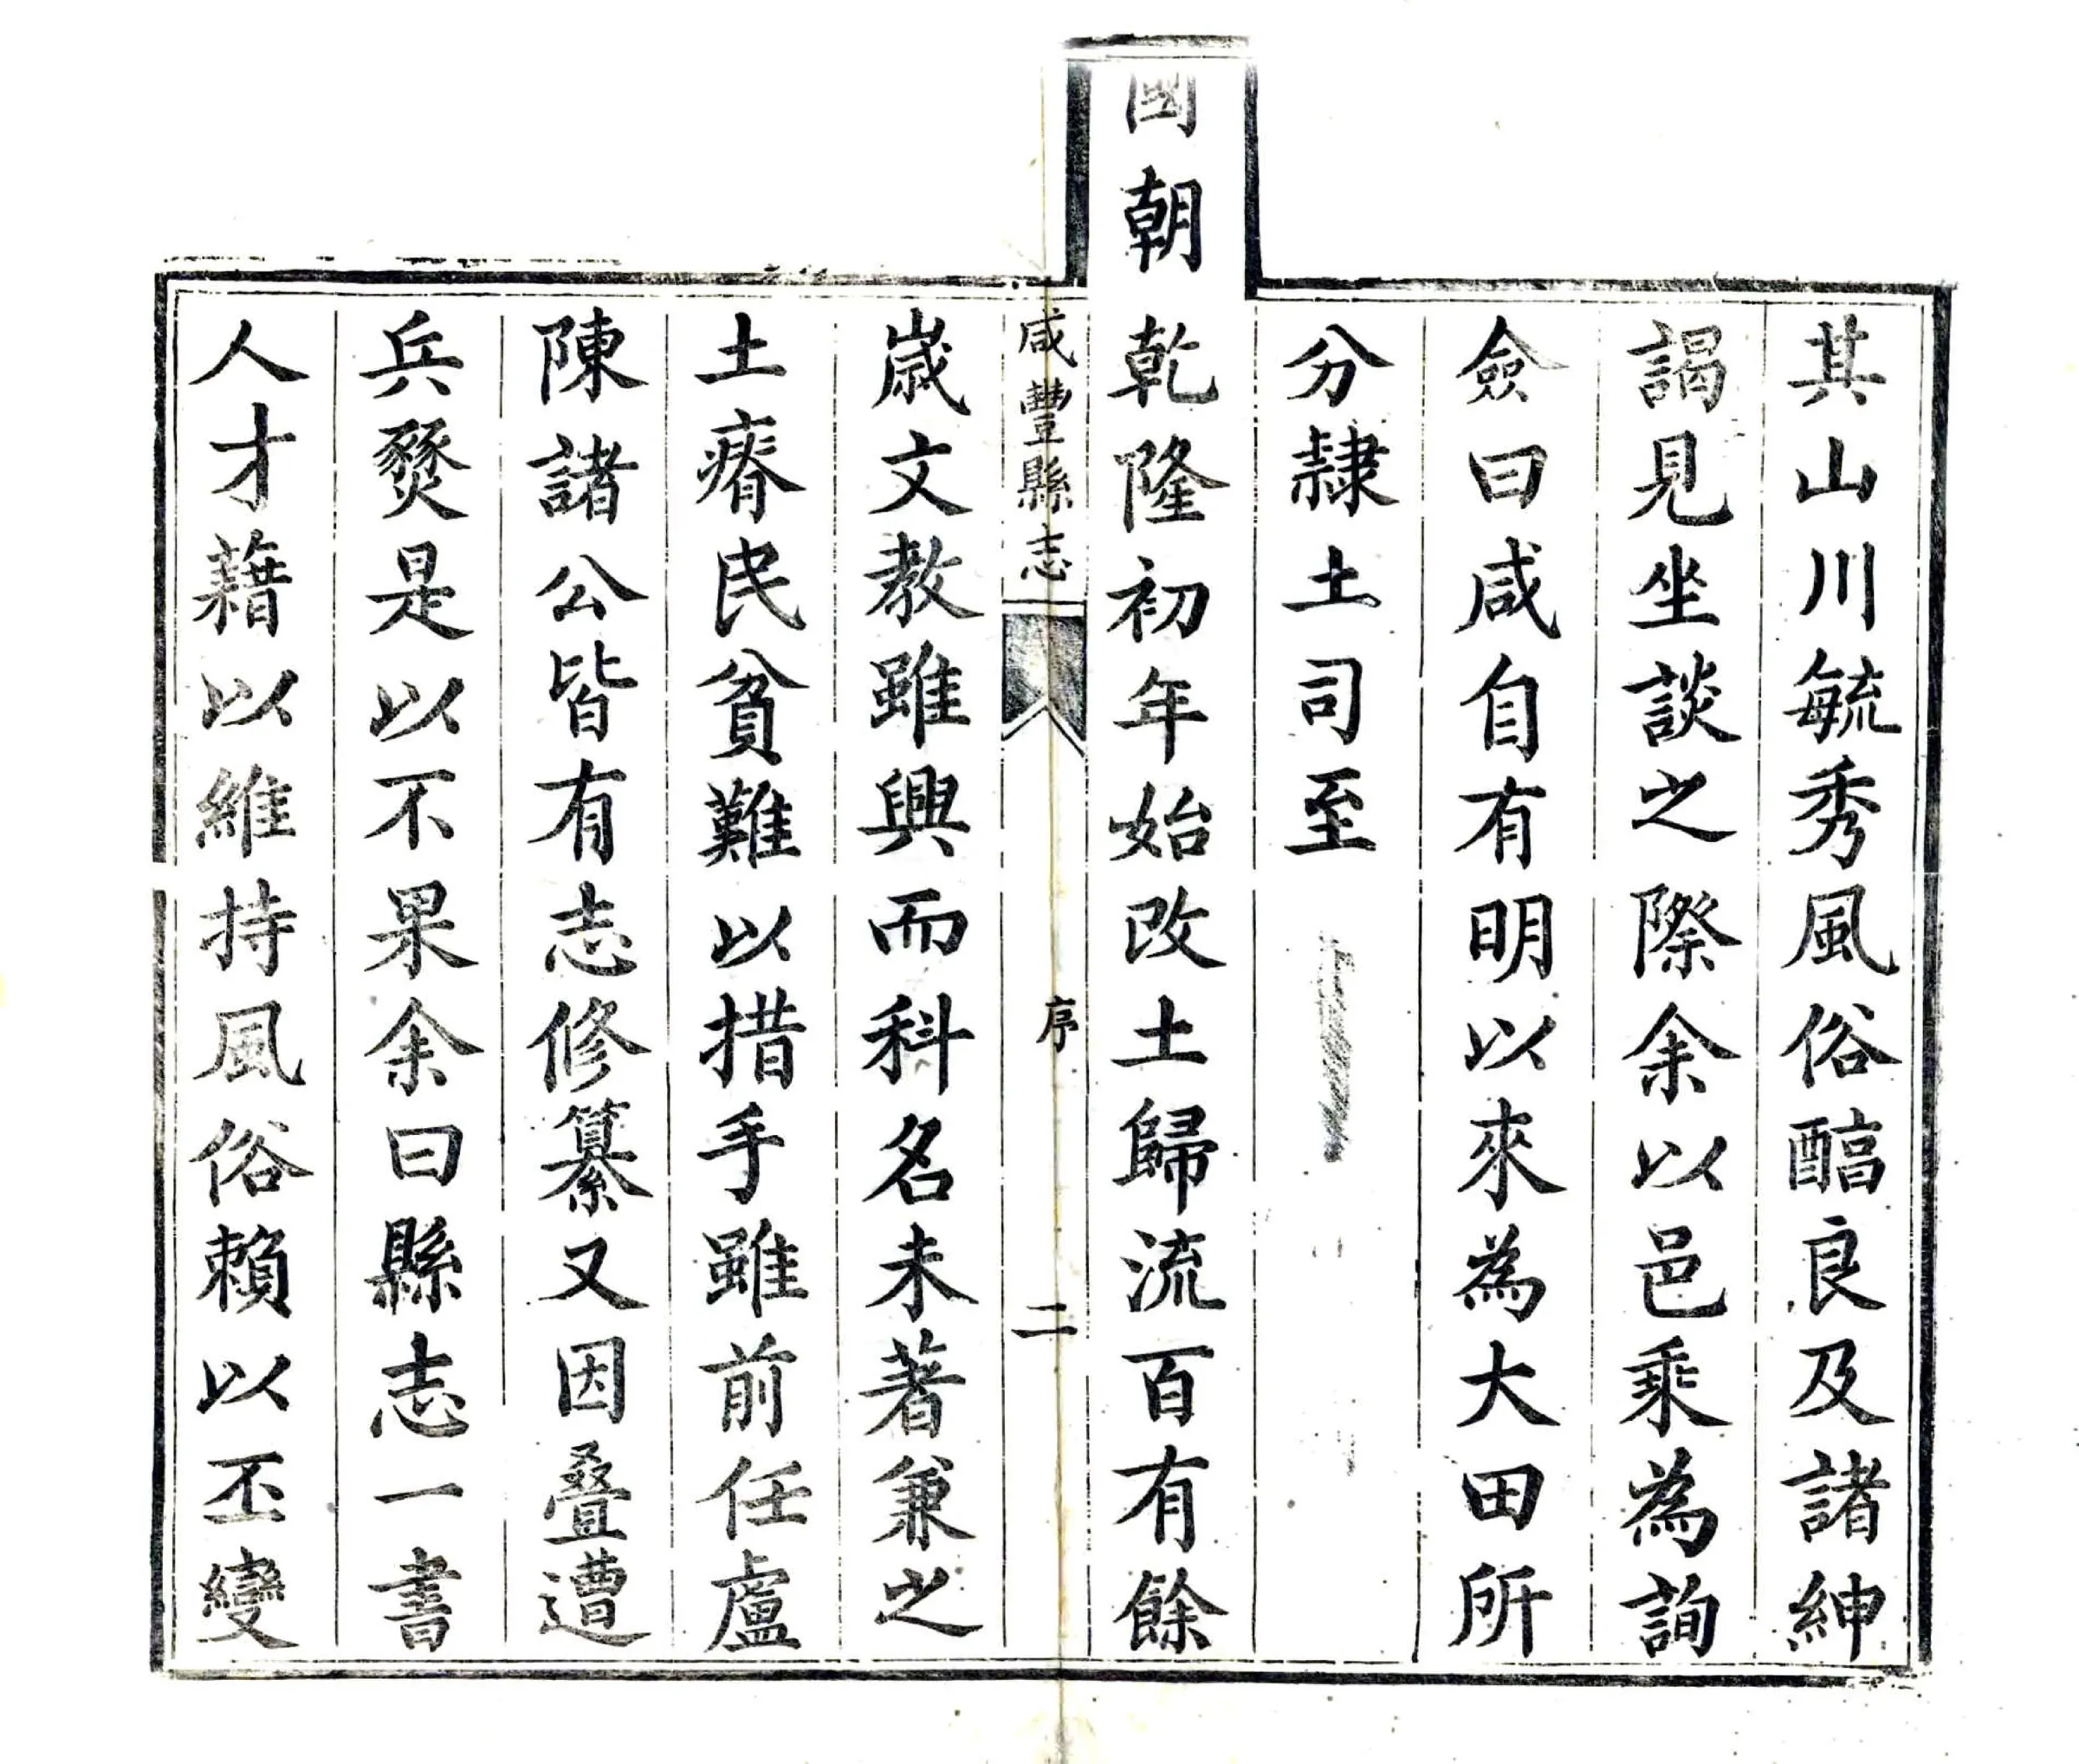 其山川毓秀風俗醕良及諸紳
謁見坐談之際余以邑乘為詢
僉曰咸自有明以來為大田所
分隸土司至
國朝乾隆初年始改土歸流百有餘
咸豐縣志
序
二
歲文教雖興而科名未著兼之
土瘠民貧難以措手雖前任盧
陳諸公皆有志修纂又因叠遭
兵燹是以不果余曰縣志一書
人才藉以維持風俗賴以丕變